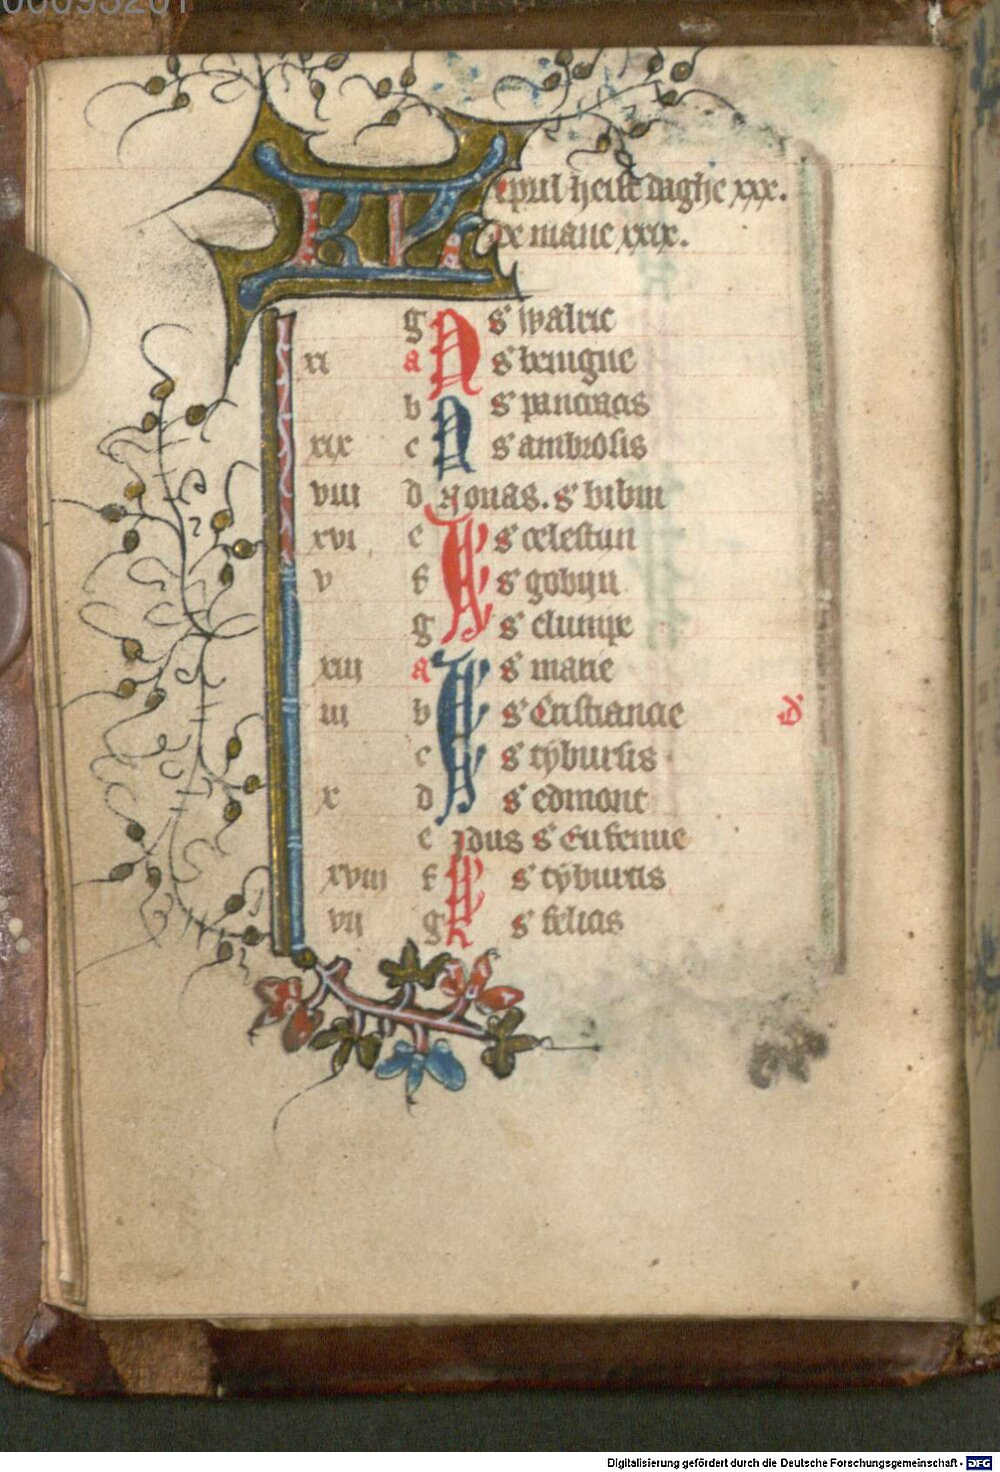 00093201
KL
epril heift daghe xxx.
De mane xxix.
g s' walric
xi a N s' benigne
b s' pancracis
xix c N s' ambrosis
viii d Nonas. s' bibin
xvi e s' celestiin
v f s' gobijn
g s' clumpe
xiii a s' marie
ii b s' Cristiancie d'
c s' tybursis
x d s' edmont
e Idus s' Eufemie
xviii f s' tyburcis
vii g s' felicis
Digitalisierung gefördert durch die Deutsche Forschungsgemeinschaft - DFG